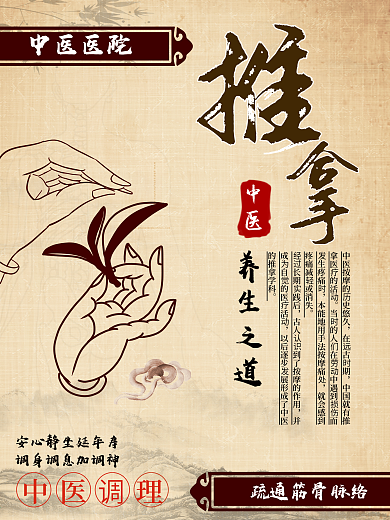 中医医院
推拿
中医
养生之道
中医按摩的历史悠久，在远古时期，中国就有推
拿医疗的活动。当时的人们在劳动中遇到损伤而
发生疼痛时，本能地用手法按摩痛处，就会感到
疼痛减轻或消失。
经过长期实践后，古人认识到了按摩的作用，并
成为自觉的医疗活动，以后逐步发展形成了中医
的推拿学科。
安心静生延年序
调身调息加调神
中医调理
疏通筋骨脉络